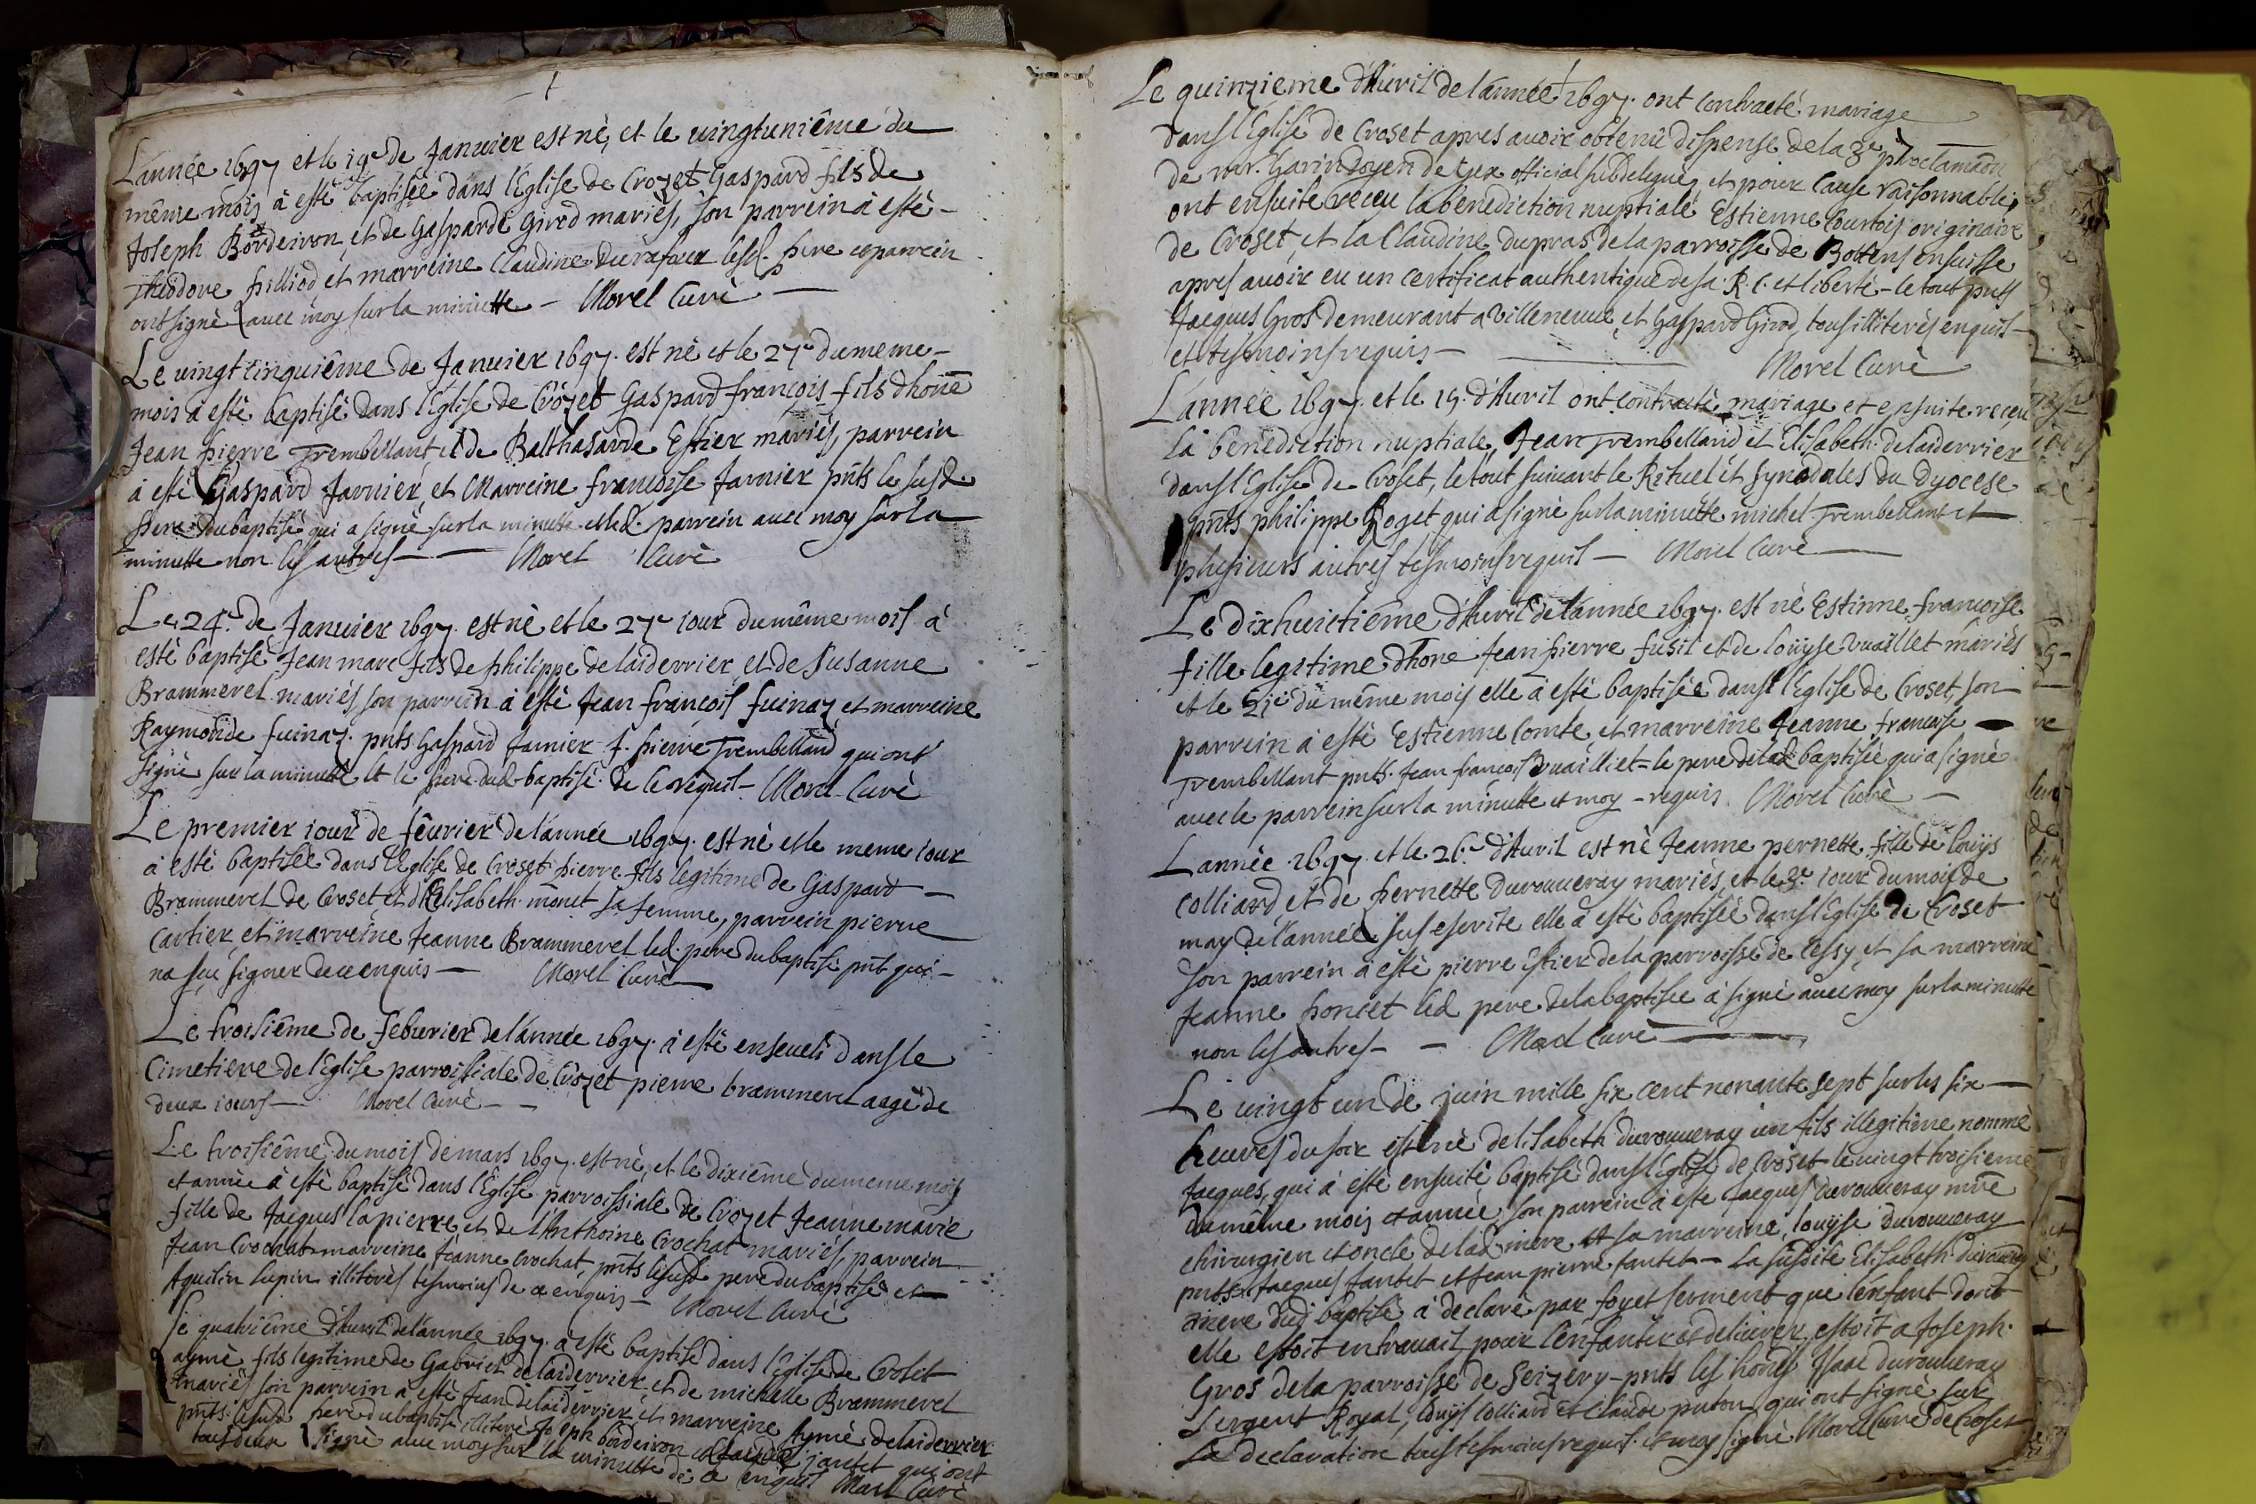 L'année 1697 et le 19e de Janvier est né, et le vingtunième du
même mois à esté baptisée dans l'Eglise de Crozet Gaspard fils de
Joseph Bordeiron et de Gasparde Girod mariés, son parrein à esté -
Theodore filliod et marreine Claudine Durafour lesd. pere et parrein
ont signé avec moy sur la minutte - Morel Curé
Le vingt cinquième de Janvier 1697. est né et le 27e du meme -
mois à esté baptisé dans l'Eglise de Crozet Gaspard françois fils d'hone
Jean pierre Trembellant et de Balthasarde Estier mariés, parrein
à esté Gaspard Jarnier et Marreine françoise Jarnier pnts le susd.
pere du baptisé qui a signé sur la minutte et led. parrein avec moy sur la
minutte non les autres - Morel Curé
Le 24e de Janvier 1697. est né et le 27e iour du même mois à
esté baptisé Jean marc fils de philippe delaiderrier et de Susanne
Brammerel mariés son parrein à esté Jean françois fuinaz et marreine
Raymonde fuinaz. pnts Gaspard Jarnier J. pierre Trembelland qui ont
signé sur la minutte et le pere dud. baptisé de ce requis - Morel Curé
Le premier iour de février de l'année 1697. est né et le meme iour
à esté baptisée dans l'Eglise de Croset pierre fils legitime de Gaspard -
Brammerel de Croset et d'Elisabeth monet sa femme, parrein pierre
Cartier et marreine Jeanne Brammerel led. pere du baptisé pnt qui -
na sçu signer de ce enquis - Morel Curé
Le troisième de feburier de l'année 1697. à esté enseueli dans le
Cimetiere de l'Eglise parroissiale de Crozet pierre brammerel aagé de
deux iours - Morel Curé -
Le troisième du mois de mars 1697. est né, et le dixième du meme mois
et année à esté baptisé dans l'Eglise parroissiale de Crozet Jeanne marie
fille de Jacques lapierre et de l'Anthoine Crochat mariés, parrein
Jean Crochat marreine Jeanne Crochat pnts lesusd pere du baptisé et
Aquilin lupin illiterés tesmoins de ce enquis - Morel Curé
Le quatrième d'Auril de l'année 1697. a esté baptisé dans l'Eglise de Croset
aymé fils legitime de Gabriel delaiderrier et de michelle Brammerel
mariés son parrein à esté Jean delaiderrier et marreine Aymé delaiderrier
pnts. lesusd pere du baptisé illiteré Joseph bordeiron et jantet qui ont
tous deux signé avec moy sur la minutte de ce enquis Morel Curé
Le quinzieme d'Auril de l'année 1697. ont contracté mariage
dans l'Eglise de Croset apres avoir obtenu dispense de la 3e proclamaon
de mr. Garin doyen de Gex official subdelegué, et pour cause raisonnable
ont ensuite receu la benediction nuptiale Estienne Courtois originaire
de Croset, et la Claudine dupras de la parroisse de Bottens en suisse
apres avoir eu un certificat authentique de sa R. C. et liberté - le tout pnts
Jacques Gros demeurant a Villeneuue et Gaspard Girod, tous illiterés enquis -
et tesmoins requis - Morel Curé
L'année 1697. et le 15. d'Auril ont contracté mariage et ensuite receu
la benediction nuptiale, Jean Trembelland et Elisabeth delaiderrier
dans l'Eglise de Croset, le tout suivant le Rituel et synodales du Dyocese
pnts philippe Roget qui a signé sur la minutte michel Trembellant et
plusieurs autres tesmoins requis - Morel Curé
Le dixhuictième d'Auril de l'année 1697. est né Estienne françoise
fille legitime d'hone Jean pierre fusil et de louyse vuaillet mariés
et le 21e du même mois elle à esté baptisée dans l'Eglise de Croset, son
parrein à esté Estienne Comte et marreine Jeanne francoise
Trembellant pnts. Jean francois Vuailliet - le pere delad baptisée qui a signé
avec le parrein sur la minutte et moy - requis. Morel Curé -
L'année 1697. et le 26e d'Auril est né Jeanne pernette fille de louys
Colliard et de pernette duvoueray mariés, et le 3e iour du mois de
may de l'année sus escrite elle à esté baptisée dans l'Eglise de Croset
son parrein à esté pierre Estier de la parroisse de Cessy, et sa marreine
Jeanne poncet led. pere de la baptisée à signé avec moy sur la minutte
non les autres - Morel Curé
Le vingt un de juin mille six cent nonante sept sur les six -
heures du soir est né delisabeth duvoueray un fils illegitime nommé
Jacques, qui à esté ensuite baptisé dans l'Eglise de Croset le vingt troisieme
du même mois et année, son parrein à este Jacques duvoueray mre
chirurgien et oncle de lad. mere et sa marreine, louyse duvoueray
pnts. Jacques Jantet et Jean pierre Jantet - La susdite Elisabeth duvoueray
mere dud. baptisé à declaré par foy et serment que l'enfant dont
elle estoit en travail pour l'enfanter et delivrer estoit a Joseph
Gros de la parroisse de Seizery - pnts les hones Isaac duvoueray
sergent Royal, louys Colliard et Claude puton qui ont signé sur
la declaration tous tesmoins requis. et moy signé Morel Curé de Croset